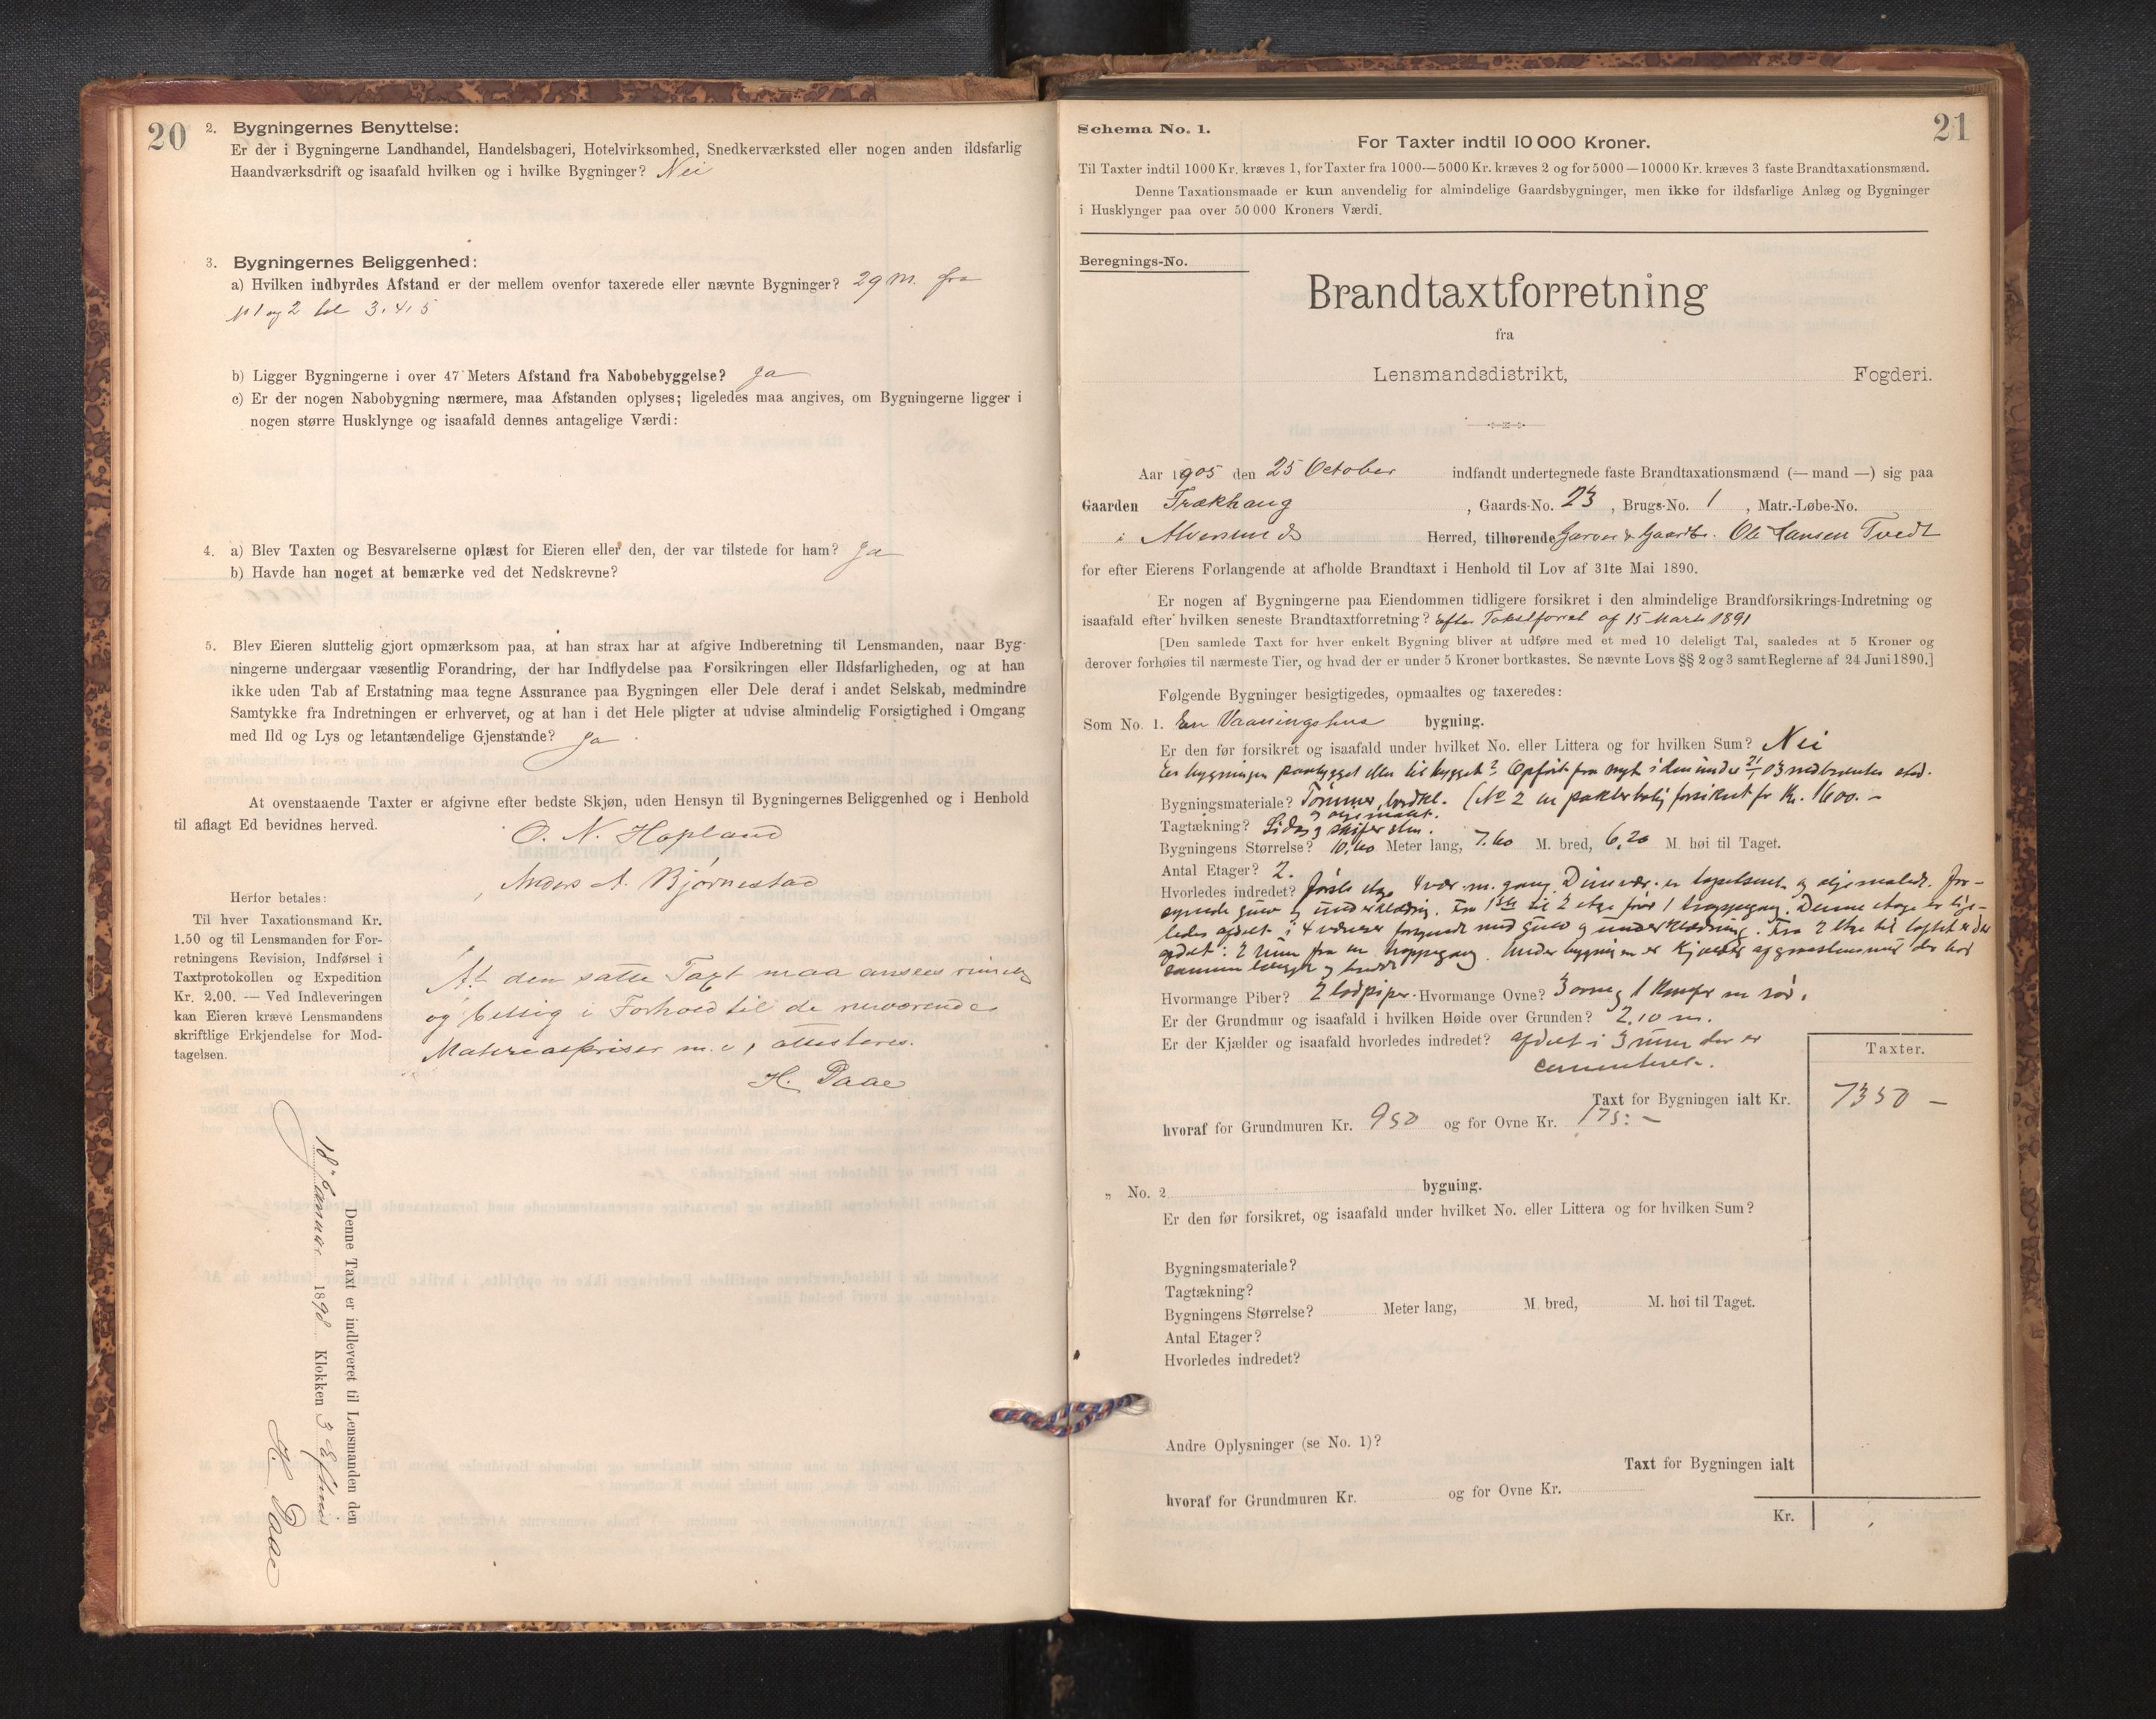 20
2. Bygningernes Benyttelse:
Er der i Bygningerne Landhandel, Handelsbageri, Hotelvirksomhed, Snedkerværksted eller nogen anden ildsfarlig
Haandværksdrift og isaafald hvilken og i hvilke Bygninger? Nei
3. Bygningernes Beliggenhed:
a) Hvilken indbyrdes Afstand er der mellem ovenfor taxerede eller nævnte Bygninger? 29 m. fra
1 og 2 til 3. 4. 5
b) Ligger Bygningerne i over 47 Meters Afstand fra Nabobebyggelse? Ja
c) Er der nogen Nabobygning nærmere, maa Afstanden oplyses; ligeledes maa angives, om Bygningerne ligger i
nogen større Husklynge og isaafald dennes antagelige Værdi:
4. a) Blev Taxten og Besvarelserne oplæst for Eieren eller den, der var tilstede for ham? Ja
b) Havde han noget at bemærke ved det Nedskrevne?
5. Blev Eieren sluttelig gjort opmærksom paa, at han strax har at afgive Indberetning til Lensmanden, naar Byg-
ningerne undergaar væsentlig Forandring, der har Indflydelse paa Forsikringen eller Ildsfarligheden, og at han
ikke uden Tab af Erstatning maa tegne Assurance paa Bygningen eller Dele deraf i andet Selskab, medmindre
Samtykke fra Indretningen er erhvervet, og at han i det Hele pligter at udvise almindelig Forsigtighed i Omgang
med Ild og Lys og letantændelige Gjenstande? Ja
At ovenstaaende Taxter er afgivne efter bedste Skjøn, uden Hensyn til Bygningernes Beliggenhed og i Henhold
til aflagt Ed bevidnes herved.
O. N. Hopland
Anders A. Bjørnestad
Herfor betales:
Til hver Taxationsmand Kr.
1.50 og til Lensmanden for For-
retningens Revision, Indførsel i
Taxtprotokollen og Expedition
Kr. 2.00. — Ved Indleveringen
kan Eieren kræve Lensmandens
skriftlige Erkjendelse for Mod-
tagelsen.
At den satte Taxt maa ansees rimelig
og billig i Forhold til de nuværende
Materialpriser m. v, attesteres.
H. Paae
Denne Taxt er indleveret til Lensmanden den
18 Januar 1898 Klokken 3 Eftmd
H. Paae
21
Schema No. 1.
For Taxter indtil 10 000 Kroner.
Til Taxter indtil 1000 Kr. kræves 1, for Taxter fra 1000—5000 Kr. kræves 2 og for 5000—10000 Kr. kræves 3 faste Brandtaxationsmænd.
Denne Taxationsmaade er kun anvendelig for almindelige Gaardsbygninger, men ikke for ildsfarlige Anlæg og Bygninger
i Husklynger paa over 50 000 Kroners Værdi.
Beregnings-No.
Brandtaxtforretning
fra
Lensmandsdistrikt, Fogderi.
Aar 1905 den 25 October indfandt undertegnede faste Brandtaxationsmænd (— mand —) sig paa
Gaarden Trækhaug, Gaards-No. 23, Brugs-No. 1, Matr.-Løbe-No.
i Alversunds Herred, tilhørende Garver & Gaardbr. Ole Hansen Tvedt
for efter Eierens Forlangende at afholde Brandtaxt i Henhold til Lov af 31te Mai 1890.
Er nogen af Bygningerne paa Eiendommen tidligere forsikret i den almindelige Brandforsikrings-Indretning og
isaafald efter hvilken seneste Brandtaxtforretning? Efter Takstforret af 15 Marts 1891
[Den samlede Taxt for hver enkelt Bygning bliver at udføre med et med 10 deleligt Tal, saaledes at 5 Kroner og
derover forhøies til nærmeste Tier, og hvad der er under 5 Kroner bortkastes. Se nævnte Lovs §§ 2 og 3 samt Reglerne af 24 Juni 1890.]
Følgende Bygninger besigtigedes, opmaaltes og taxeredes:
Som No. 1. En Vaaningshus bygning.
Er den før forsikret og isaafald under hvilket No. eller Littera og for hvilken Sum? Nei
Er bygningen paabygget eller tilbygget? Opført fra nyt i den under 03 nedbrændte sted.
Bygningsmateriale? Tømmer, bordkl. (No 2 forsikret for Kr. 1600. -
og oljemalt.
Tagtækning? og skifersten.
Bygningens Størrelse? 10,60 Meter lang, 7.60 M. bred, 6,20 M. høi til Taget.
Antal Etager? 2.
Hvorledes indredet? første etage 4 vær. m. gang. er tapetseret og oljemalede. For-
synede og underklædning. Fra 1ste til 2 etge fører 1 trappegang. Denne etage er lige-
ledes afdelt i 4 værelser forsynede med og underklædning. Fra 2 etge til loftet er der
afdelt: 2 rum fra en trappegang. Under bygningen er Kjælder af graastensmur der har
samme længde og bredde
Hvormange Piber? 2 Hvormange Ovne? 3 ovne, 1 Komfur m rør.
Er der Grundmur og isaafald i hvilken Høide over Grunden? 2,10 m.
Er der Kjælder og isaafald hvorledes indredet? afdelt i 3 rum der er
cementeret.
Taxter.
Taxt for Bygningen ialt Kr. 7350 —
hvoraf for Grundmuren Kr. 950 og for Ovne Kr. 175: —
„ No. 2 bygning.
Er den før forsikret, og isaafald under hvilket No. eller Littera og for hvilken Sum?
Bygningsmateriale?
Tagtækning?
Bygningens Størrelse? Meter lang, M. bred, M. høi til Taget.
Antal Etager?
Hvorledes indredet?
Andre Oplysninger (se No. 1)?
Taxt for Bygningen ialt
hvoraf for Grundmuren Kr. og for Ovne Kr.
Kr.